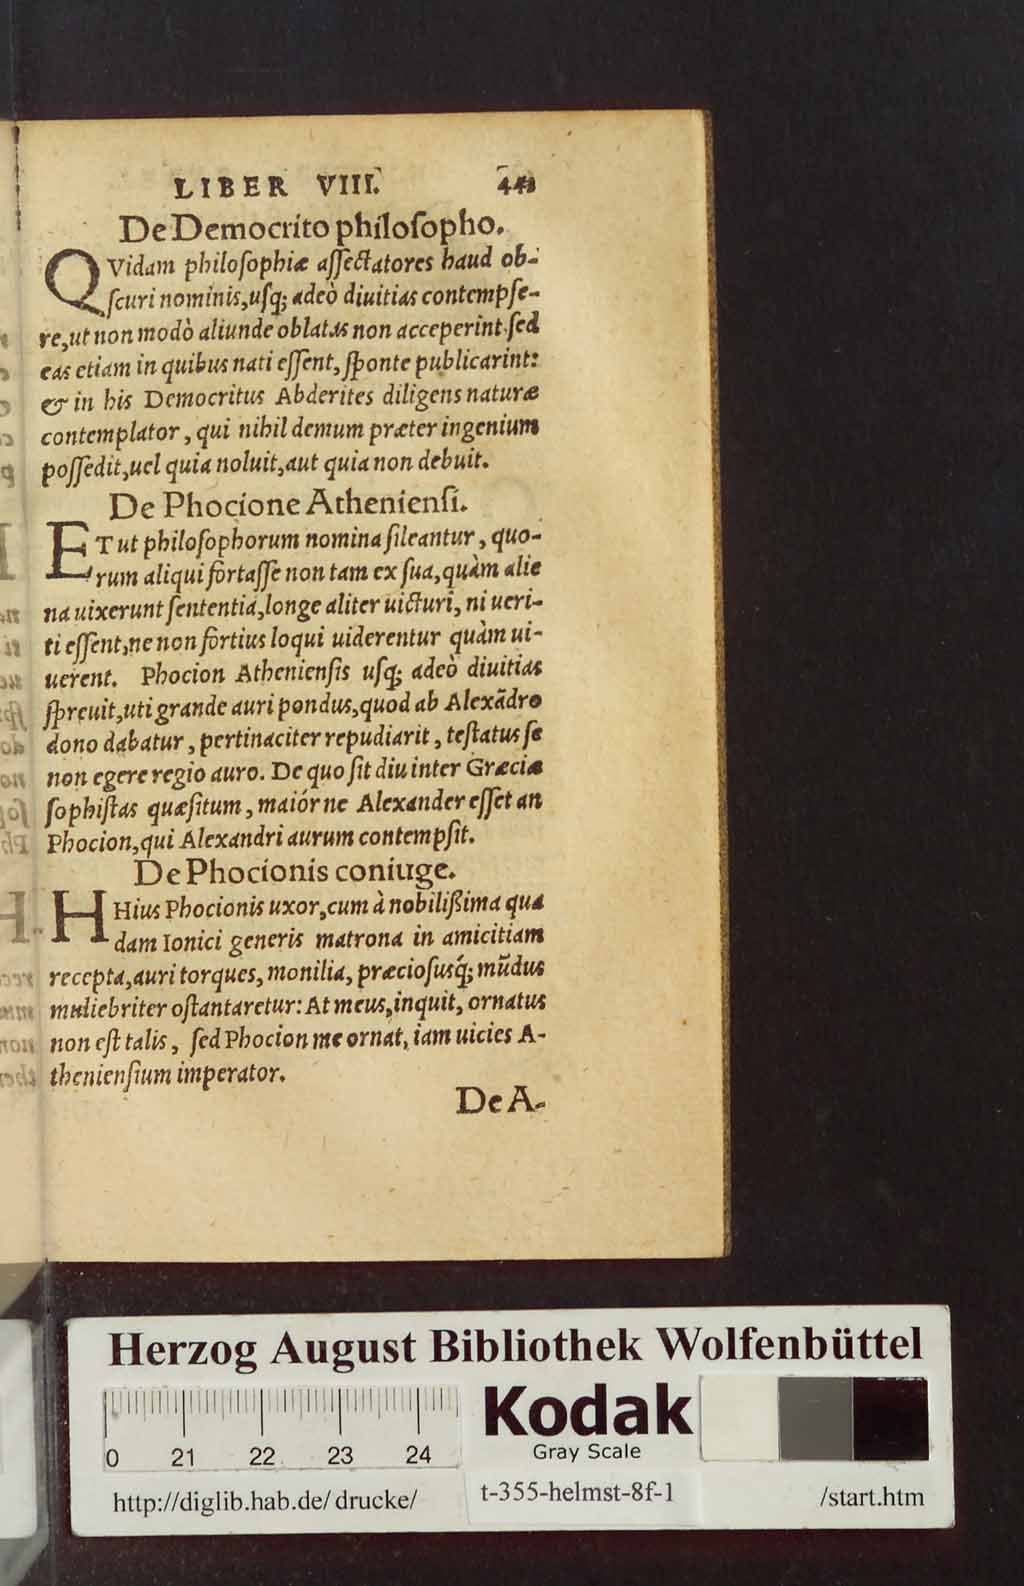 LIBER VIII. 441
De Democrito philoſopho.
QVidam philoſophiæ aſſectatores haud ob-
ſcuri nominis, uſq; adeò diuitias contempſe-
re, ut non modò aliunde oblatas non acceperint. ſed
eas etiam in quibus nati eſſent, ſponte publicarint:
& in his Democritus Abderites diligens naturæ
contemplator, qui nihil demum præter ingenium
poſſedit, uel quia noluit, aut quia non debuit.
De Phocione Athenienſi.
ET ut philoſophorum nomina ſileantur, quo-
rum aliqui fortaſſe non tam ex ſua, quàm alie
na uixerunt ſententia, longe aliter uicturi, ni ueri-
ti eſſent, ne non fortius loqui uiderentur quàm ui-
uerent. Phocion Athenienſis uſq; adeò diuitias
ſpreuit, uti grande auri pondus, quod ab Alexãdro
dono dabatur, pertinaciter repudiarit, teſtatus ſe
non egere regio auro. De quo ſit diu inter Græciæ
ſophiſtas quæſitum, maiór ne Alexander eſſet an
Phocion, qui Alexandri aurum contempſit.
De Phocionis coniuge.
HHius Phocionis uxor, cum à nobilißima qua
dam Ionici generis matrona in amicitiam
recepta, auri torques, monilia, præcioſusq́; mũdus
muliebriter oſtantaretur: At meus, inquit, ornatus
non eſt talis, ſed Phocion me ornat, iam uicies A-
thenienſium imperator.
De A-
Herzog August Bibliothek Wolfenbüttel
0 21 22 23 24
Kodak
Gray Scale
http://diglib.hab.de/drucke/ t-355-helmst-8f-1 /start.htm